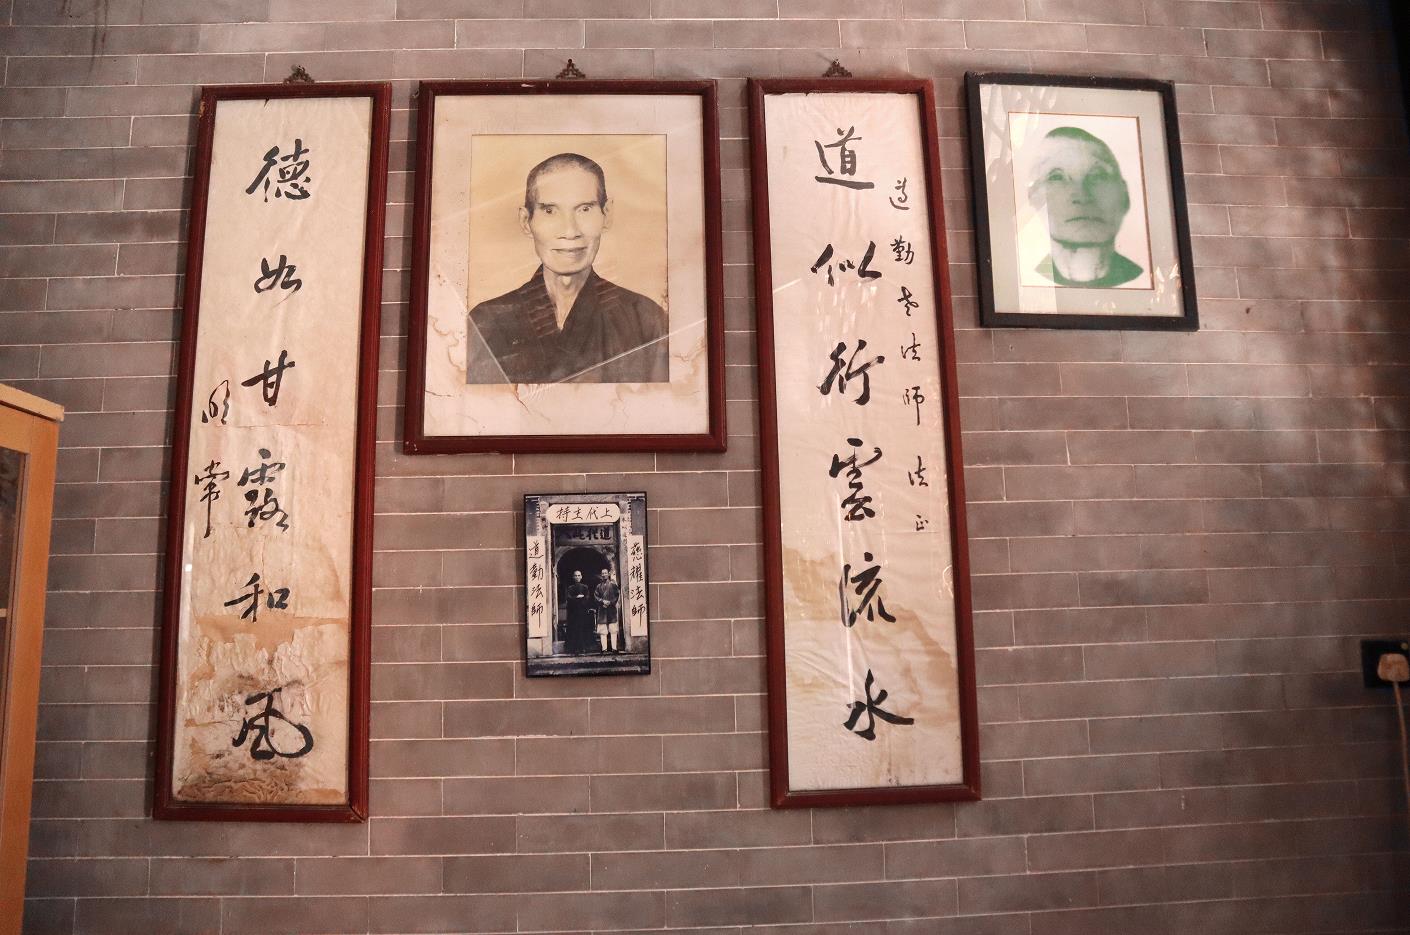 道似行雲流水
道勤老法師法正
德如甘露和風
明常
上代主持
慈耀法師
道勤法師